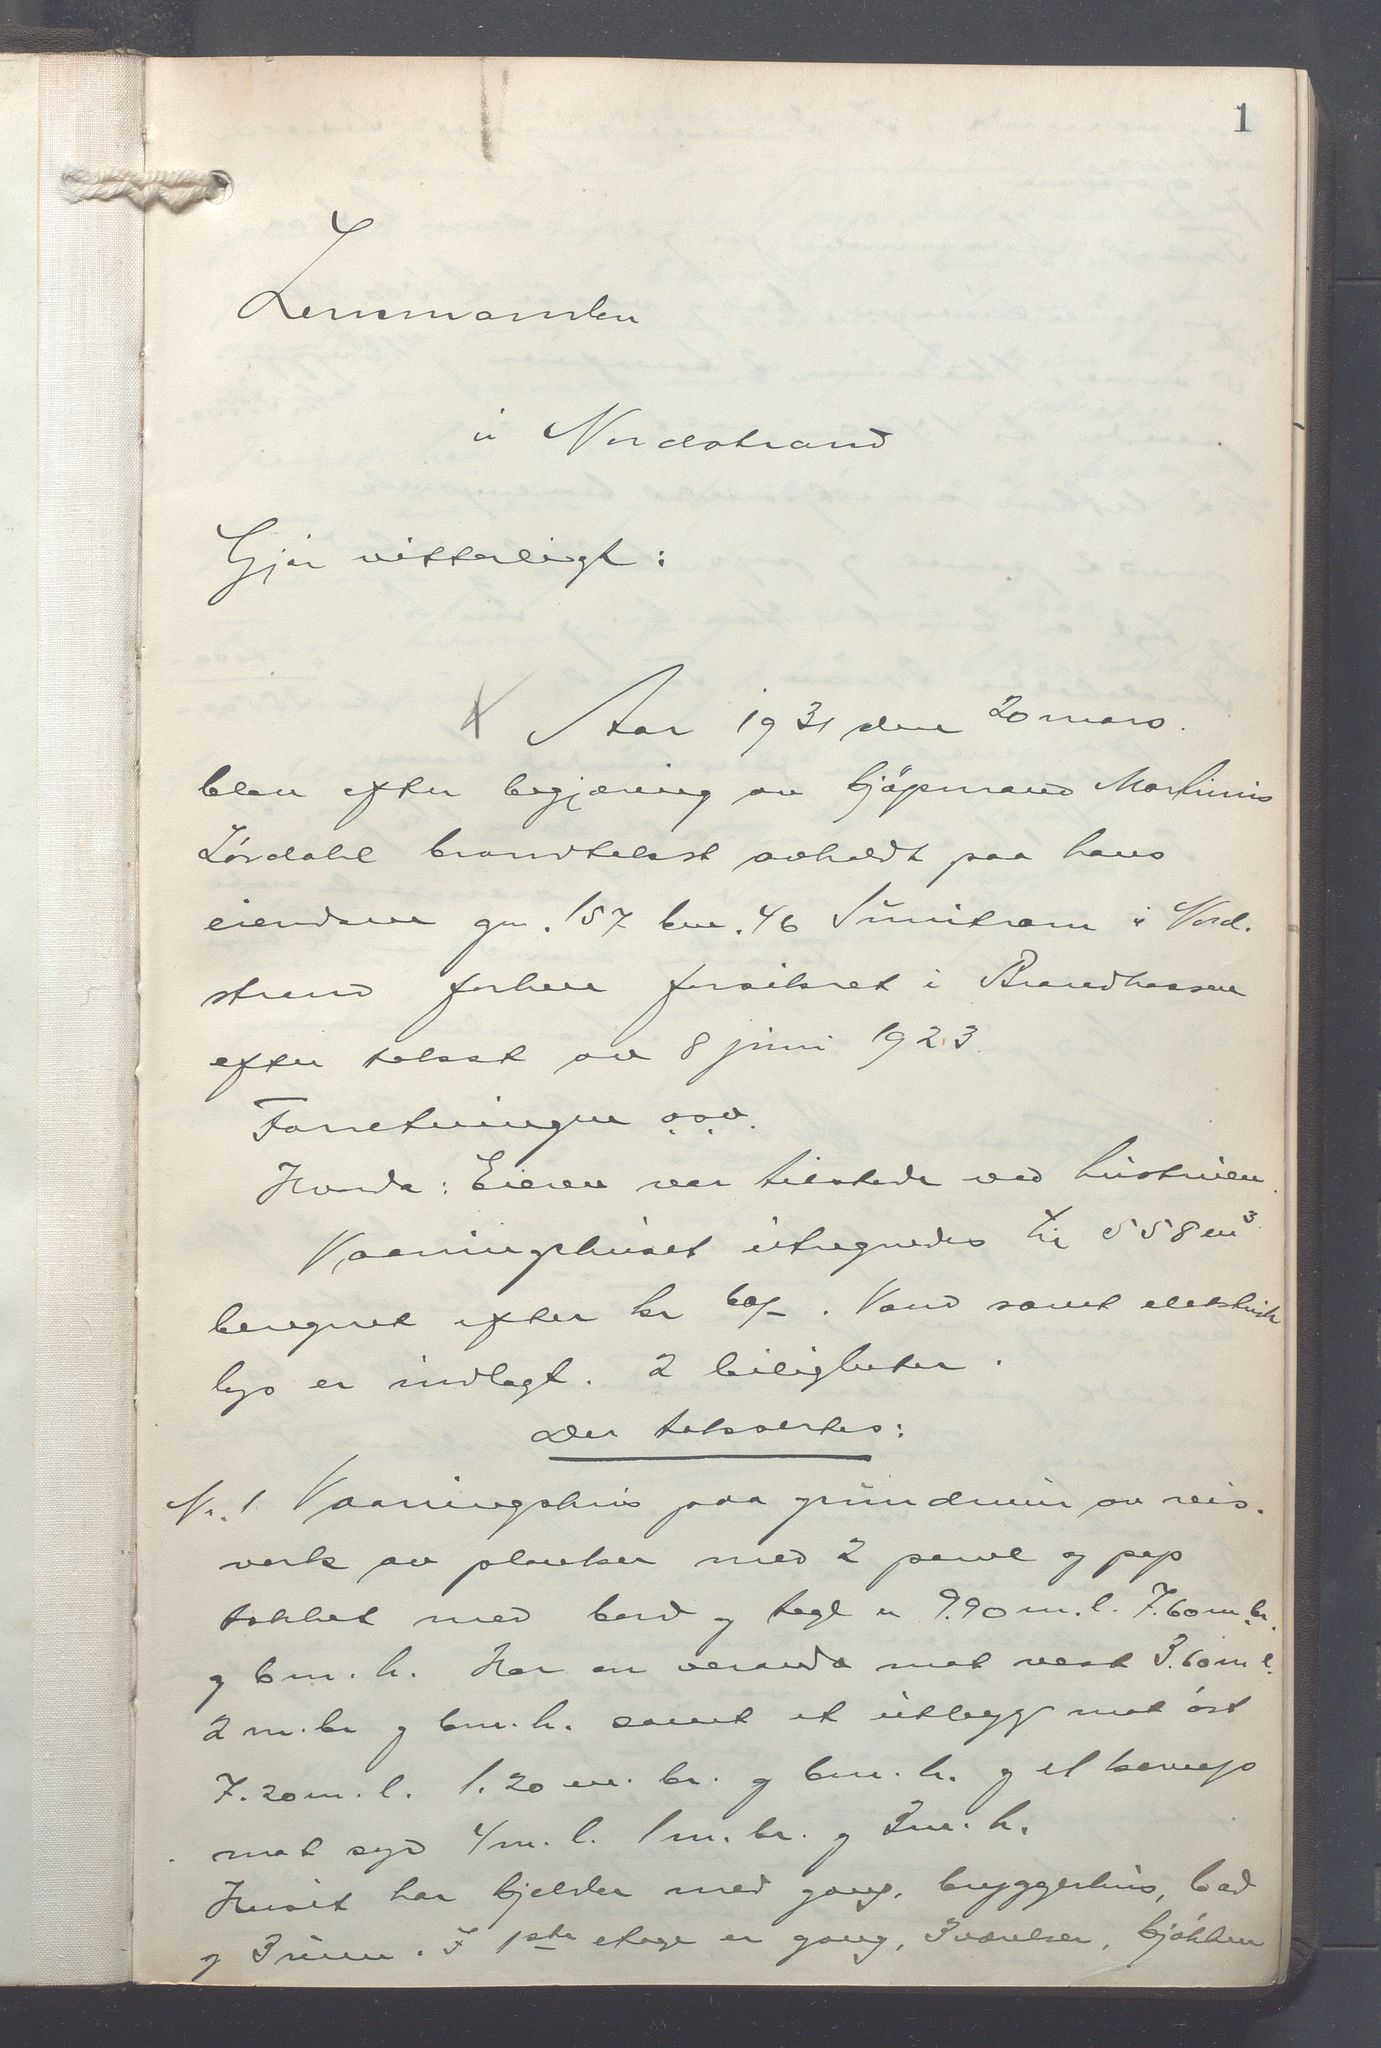 1
Lensmanden
i Nordstrand
Gjör vitterligt:
Aar 1931 den 20 mars.
blev efter begjæring av kjöpmand Martinius
Lördahl brandtakst avholdt paa hans
eiendom gn. 157 bn. 46 i Nord.
strand forhen forsikret i Brandkassen
efter takst av 8 juni 1923.
Forretningen o.s.v.
Hvorda: Eieren var tilstede ved hustruen.
Vaaningshuset utregnedes til 558 m³
beregnet efter kr 60/-. Vand samt elektrisk
lys er indlagt. 2 leiligheter.
Der taksertes:
Nr. 1 Vaaningshus paa grundmur av reis.
verk av planker med 2 panel og pap
tækket med bord og tegl er 9.90 m. l. 7.60 m. br.
og 6 m. h. Har en veranda mot vest 3.60 m l.
2 m. br og 6 m. h. samt et utbygg mot öst
7.20 m. l. 1.20 m. br. og 6 m. h. og et
mot syd 4 m. l. 1 m. br. og 3 m. h.
Huset har kjelder med gang, bryggerhus, bad
og 3 rum. I 1ste etage er gang, 3 værelser, kjökken